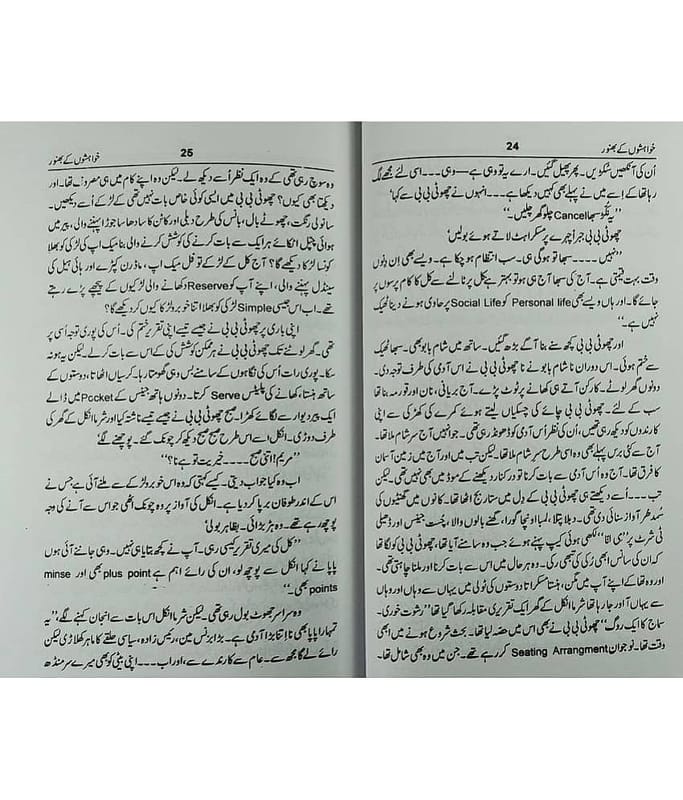 خواہشوں کے بھنور
24
اُن کی آنکھیں سُکڑیں۔ پھر پھیل گئیں۔ ارے یہ تو وہی ہے ـ وہی۔۔۔ اسی لئے مجھے لگ
رہا تھا کے اِسے میں نے پہلے بھی کہیں دیکھا ہے۔۔۔ انہوں نے چھوٹی بی بی سے کہا’
سبھا Cancel چلو گھر چلیں۔“
چھوٹی بی بی جبراً چہرے پر مسکراہٹ لاتے ہوئے بولیں’
”نہیں۔۔۔۔ سبھا تو ہوگی ہی۔ سب انتظام ہو چکا ہے۔ ویسے بھی اِن دِنوں
وقت بہت قیمتی ہے۔ آج کی سبھا آج ہی ہو تو بہتر ہے کل پر ٹالنے سے کل کا کام پرسوں پر
جائے گا۔ اور ہاں ویسے بھی Personal life کو Social Life پر حاوی ہونے دینا ٹھیک
نہیں ہے۔“
اور چھوٹی بی بی کچھ سنے بنا آگے بڑھ گئیں۔ ساتھ میں شام بابو بھی۔ سبھا ٹھیک
سے ختم ہوئی۔ اس دوران نا شام بابو نے نا چھوٹی بی بی نے اس آدمی کی طرف توجہ دی۔
دونوں گھر لوٹے۔ کارکن آتے ہی کھانے پر ٹوٹ پڑے۔ آج بریانی، نان اور قورمہ بنا تھا
سب کے لئے۔ چھوٹی بی بی چائے کی چسکیاں لیتے ہوئے کمرے کی کھڑکی سے اپنی
کارندوں کو دیکھ رہی تھیں، اُن کی نظر اُس آدمی کو ڈھونڈ رہی تھی۔ جو انہیں آج سرِشام ملا تھا۔
آج سے کئی برس پہلے بھی وہ اسی طرح سرِشام ملا تھا۔ لیکن تب میں اور آج میں زمین آسمان
کا فرق تھا۔ آج وہ اُس آدمی سے بات کرنا تو درکنار دیکھنے کے موڈ میں بھی نہیں تھی۔ لیکن
تب۔۔۔ اُسے دیکھتے ہی چھوٹی بی بی کے دِل میں ستار بج اٹھا تھا۔ کانوں میں گھنٹیوں کی
آواز سنائی دی تھی۔ دبلا پتلا، لمبا اونچا گورا، گھنے بالوں والا، چُست جینس اور ڈھیلی
ٹی شرٹ پر ”سی لتا“ لکھی ہوئی کیپ پہنے ہوئے جب وہ سامنے آیا تھا، چھوٹی بی بی کو لگا تھا
کہ ان کی سانس ابھی رُکی کی تھکی رُکی۔ وہ ہر حال میں اس سے بات کرنا اور ملنا چاہتی تھی۔
اور وہ تھا کے اپنے آپ میں مگن، ہنستا مسکراتا دوستوں کی ٹولی میں یہاں سے وہاں اور وہاں
سے یہاں آ اور جا رہا تھا۔ شرما انکل کے گھر ایک تقریری مقابلہ رکھا گیا تھا ”رشوت خوری۔
سماج کا ایک روگ“ چھوٹی بی بی نے بھی اس میں حصّہ لیا تھا۔ بحث شروع ہونے میں ابھی
وقت تھا۔ نوجوان Seating Arrangment کر رہے تھے۔ جن میں وہ بھی شامل تھا۔
25
خواہشوں کے بھنور
وہ سوچ رہی تھی کے وہ ایک نظر اُسے دیکھ لے۔ لیکن وہ اپنے کام میں ہی مصروف تھا۔ اور
دیکھتا بھی کیوں؟ چھوٹی بی بی میں ایسی کوئی خاص بات نہیں تھی کے لڑکے اُسے دیکھیں۔
سانولی رنگت، چھوٹے بال، بانس کی طرح دبلی اور کاٹن کا سادھا سا جوڑا پہننے والی، پیر میں
ہوائی چپل اٹکائے ہر ایک سے بات کرنے کی کوشش کرنے والی بنا میک اپ کی لڑکی کو بھلا
کونسا لڑکا دیکھے گا؟ آج کل کے لڑکے تو فل میک اپ، ماڈرن کپڑے اور ہائی ہیل کی
سینڈل پہننے والی، اپنے آپ کو Reserve دکھانے والی لڑکیوں کے پیچھے پڑے رہتے
تھے۔ اب اس جیسی Simple لڑکی کو بھلا اتنا خوبرو لڑکا کیوں کر دیکھے گا؟
اپنی باری پر چھوٹی بی بی نے جیسے تیسے اپنی تقریر ختم کی۔ اُس کی پوری توجہ اُسی پر
تھی۔ گھر لوٹنے تک چھوٹی بی بی نے ہر ممکن کوشش کی کے اس سے بات کر لے۔ لیکن یہ ہو نہ
سکا۔ پوری رات اُس کی نگاہوں کے سامنے بس وہی گھومتا رہا۔ کرسیاں اٹھاتا، دوستوں کے
ساتھ ہنستا، کھانے کی پلیٹس Serve کرتا۔ دونوں ہاتھ جینس کے Pocket میں ڈالے
ایک پیر دیوار سے لگائے کھڑا۔ صبح چھوٹی بی بی نے جیسے تیسے ناشتہ کیا اور شرما انکل کے گھر کی
طرف دوڑی۔ انکل اسے اس طرح صبح صبح دیکھ کر چونک گئے۔ پوچھنے لگے’
”مریم! اتنی صبح۔۔۔۔ خیریت تو ہے نا؟“
اب وہ کیا جواب دیتی۔ کیسے کہتی کہ وہ اس خوبرو لڑکے سے ملنے آئی ہے جس نے
اس کے اندر طوفان برپا کر دیا ہے۔ انکل کی آواز پر وہ چونک اٹھی جو اس سے آنے کی وجہ
پوچھ رہے تھے۔ وہ ہڑبڑائی۔ بظاہر بولی’
”کل کی میری تقریر کیسی رہی۔ آپ نے کچھ بتایا ہی نہیں۔ وہی جاننے آئی ہوں
پاپا نے کہا انکل سے پوچھ لو، ان کی رائے اہم ہے plus point بھی اور minse
points بھی۔“
وہ سراسر جھوٹ بول رہی تھی۔ لیکن شرما انکل اس بات سے انجان کہنے لگے، ”یہ
تمہارا پاپا بھی نا! اتنا بڑا آدمی ہے۔ بڑا بزنس مین، رئیس زادہ، سیاسی حلقے کا ماہر کھلاڑی لیکن
رائے لے گا مجھ سے۔ عام سے کارندے سے، اور اب۔۔۔ اپنی بیٹی کو بھی میرے سر منڈھ